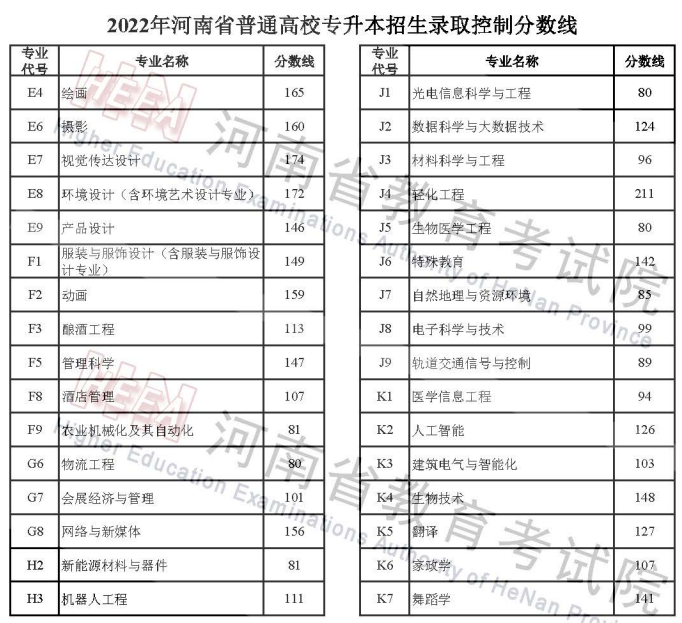 2022年河南省普通高校专升本招生录取控制分数线
专业代号 专业名称 分数线
E4 绘画 165
E6 摄影 160
E7 视觉传达设计 174
E8 环境设计（含环境艺术设计专业） 172
E9 产品设计 146
F1 服装与服饰设计（含服装与服饰设计专业） 149
F2 动画 159
F3 酿酒工程 113
F5 管理科学 147
F8 酒店管理 107
F9 农业机械化及其自动化 81
G6 物流工程 80
G7 会展经济与管理 101
G8 网络与新媒体 156
H2 新能源材料与器件 81
H3 机器人工程 111
专业代号 专业名称 分数线
J1 光电信息科学与工程 80
J2 数据科学与大数据技术 124
J3 材料科学与工程 96
J4 轻化工程 211
J5 生物医学工程 80
J6 特殊教育 142
J7 自然地理与资源环境 85
J8 电子科学与技术 99
J9 轨道交通信号与控制 89
K1 医学信息工程 94
K2 人工智能 126
K3 建筑电气与智能化 103
K4 生物技术 148
K5 翻译 127
K6 家政学 107
K7 舞蹈学 141
HEEA
河南省教育考试院
Higher Education Examinations Authority of HeNan Province
HEEA
河南省教育考试院
Higher Education Examinations Authority of HeNan Province